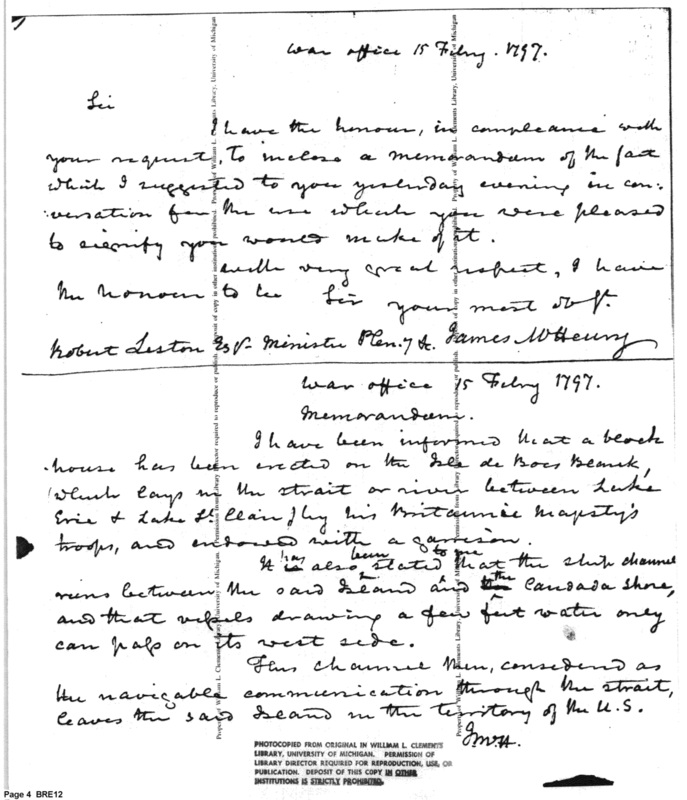 War office 15 Feby. 1797.
Sir
I have the honour, in compleance with
your request, to inclose a memorandum of the fact
which I suggested to you yesterday evening in con-
versation for the use which you were pleased
to signify you would make of it.
with very great respect, I have
the honour to be Sir your most obt.
Robert Liston Esqr. Minister Plen.y &. James McHenry
War office 15 Feby 1797.
Memorandum.
I have been informed that a block
house has been erected on the Isle de Bois Blank,
which lays in the strait or river between Lake
Erie & Lake St. Clair by his Britannic Majesty's
troops, and endowed with a garrison.
It has also been stated to me that the ship channel
runs between the said Island and the Candada Shore,
and that vessels drawing a few feet water only
can pass on its west side.
This channel then, considered as
the navigable communication through the strait,
leaves the said Island in the territory of the U.S.
JMcH.
PHOTOCOPIED FROM ORIGINAL IN WILLIAM L. CLEMENTS
LIBRARY, UNIVERSITY OF MICHIGAN. PERMISSION OF
LIBRARY DIRECTOR REQUIRED FOR REPRODUCTION, USE, OR
PUBLICATION. DEPOSIT OF THIS COPY IN OTHER
INSTITUTIONS IS STRICTLY PROHIBITED.
Page 4 BRE12